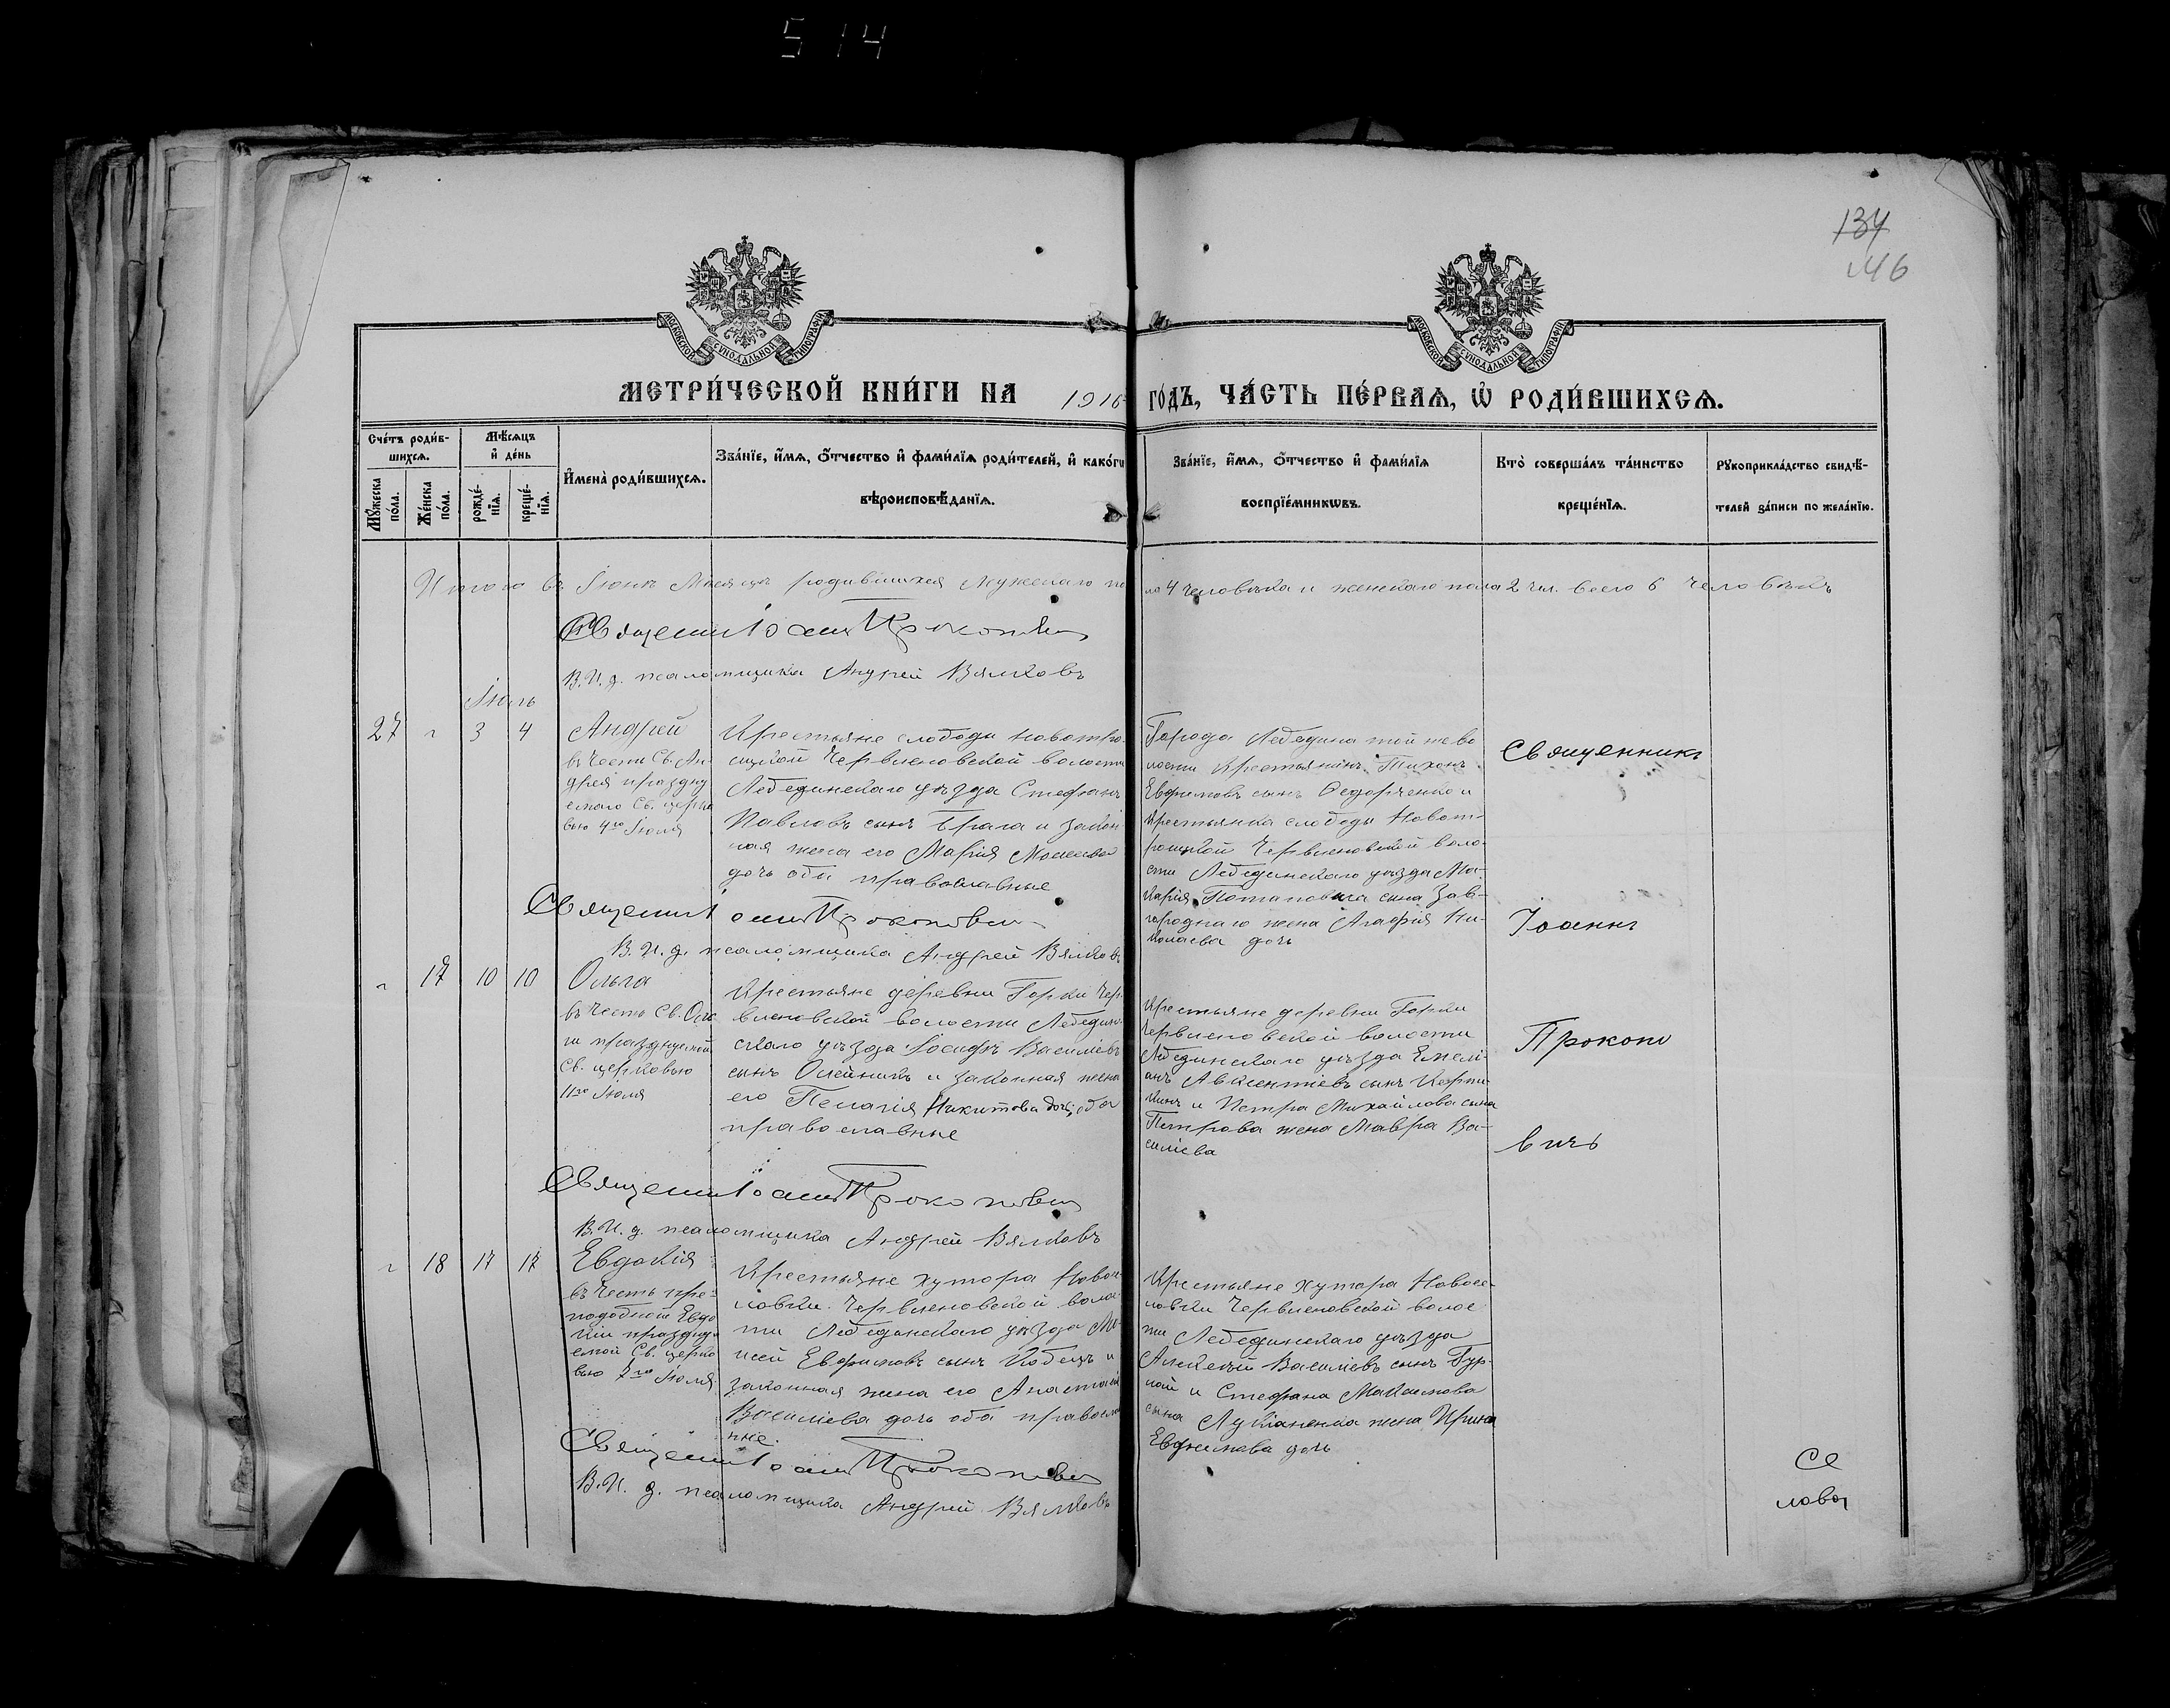 514
134
146
МОСКОВСКОЙ СѴНОДАЛЬНОЙ ТИПОГРАФІИ
МОСКОВСКОЙ СѴНОДАЛЬНОЙ ТИПОГРАФІИ
МЕТРИ́ЧЕСКОЙ КНИ́ГИ НА 1916 ГО́ДЪ, ЧА́СТЬ ПЕ́РВАѦ, Ѡ҆ РОДИ́ВШИХСѦ.
Сче́тъ роди́в-
шихсѧ.
Мꙋ́жеска по́ла.
Же́нска по́ла.
Мѣ́сѧцъ
и҆ де́нь
рожде́-
нїѧ.
креще́-
нїѧ.
И҆мена̀ роди́вшихсѧ.
Зва́нїе, и҆́мѧ, ѻ҆́тчество и҆ фами́лїѧ роди́телей, и҆ како́гѡ
вѣроисповѣ́данїѧ.
Зва́нїе, и҆́мѧ, ѻ҆́тчество и҆ фами́лїѧ
воспрїе́мникѡвъ.
Кто̀ соверша́лъ та́инство
креще́нїѧ.
Рꙋкоприкла́дство свидѣ́-
телей за́писи по жела́нїю.
Итого въ Іюнѣ Месяцѣ родившихся Мужскаго пола 4 человѣка и женскаго пола 2 чел. всего 6 человѣкъ
Священ Іоаннъ Прокопович
В. И. д. псаломщика Андрей Вялковъ
Іюль
27 " 3 4
Андрей
въ честь Св. Ан-
дрея праздну
емаго Св. церко
вью 4го Іюля
Крестьяне слободы Новотро-
ицкой Червленовской волости
Лебединскаго уѣзда Стефанъ
Павловъ сынъ Брага и закон-
ная жена его Марія Моисеева
дочь оба православные
Города Лебедина той же во
лости крестьянинъ Тихонъ
Евфимовъ сынъ Ѳедорченко и
крестьянка слободы Новот-
роицкой Червленовской воло-
сти Лебединскаго уѣзда Ма-
карія Потаповича сына Зав-
городнаго жена Агафія Ни-
колаева дочь
Священникъ
Іоаннъ
Прокопо
вичъ
Священ Іоаннъ Прокопович
В. И. д. псаломщика Андрей Вялковъ
" 17 10 10
Ольга
въ честь Св. Оль
ги празднуемой
Св. церковью
11го Іюля
Крестьяне деревни Горки Чер-
вленовской волости Лебедин-
скаго уѣзда Іосифъ Василіевъ
сынъ Олейникъ и законная жена
его Пелагія Никитова дочь, оба
православные
Крестьяне деревни Горки
Червленовской волости
Лебединскаго уѣзда Емелі-
анъ Авксентіевъ сынъ
и Петра Михайлова сына
Петрова жена Мавра Ва-
силіева
Священ Іоаннъ Прокопович
В. И. д. псаломщика Андрей Вялковъ
" 18 17 17
Евдокія
въ честь пре-
подобной Евдо
кіи праздну
емой Св. церко
вью 7го Іюля
Крестьяне хутора Новосе-
ловки Червленовской волос
ти Лебединскаго уѣзда Мо-
исей Евфимовъ сынъ Кобецъ и
законная жена его Анастасія
Василіева дочь оба православ
ные.
Крестьяне хутора Новосе-
ловки Червленовской волос
ти Лебединскаго уѣзда
Алексѣй Василіевъ сынъ Гур-
ной и Стефана Максимова
сына Лукіаненка жена Ирина
Евфимова дочь
Священ Іоаннъ Прокопович
В. И. д. псаломщика Андрей Вялковъ